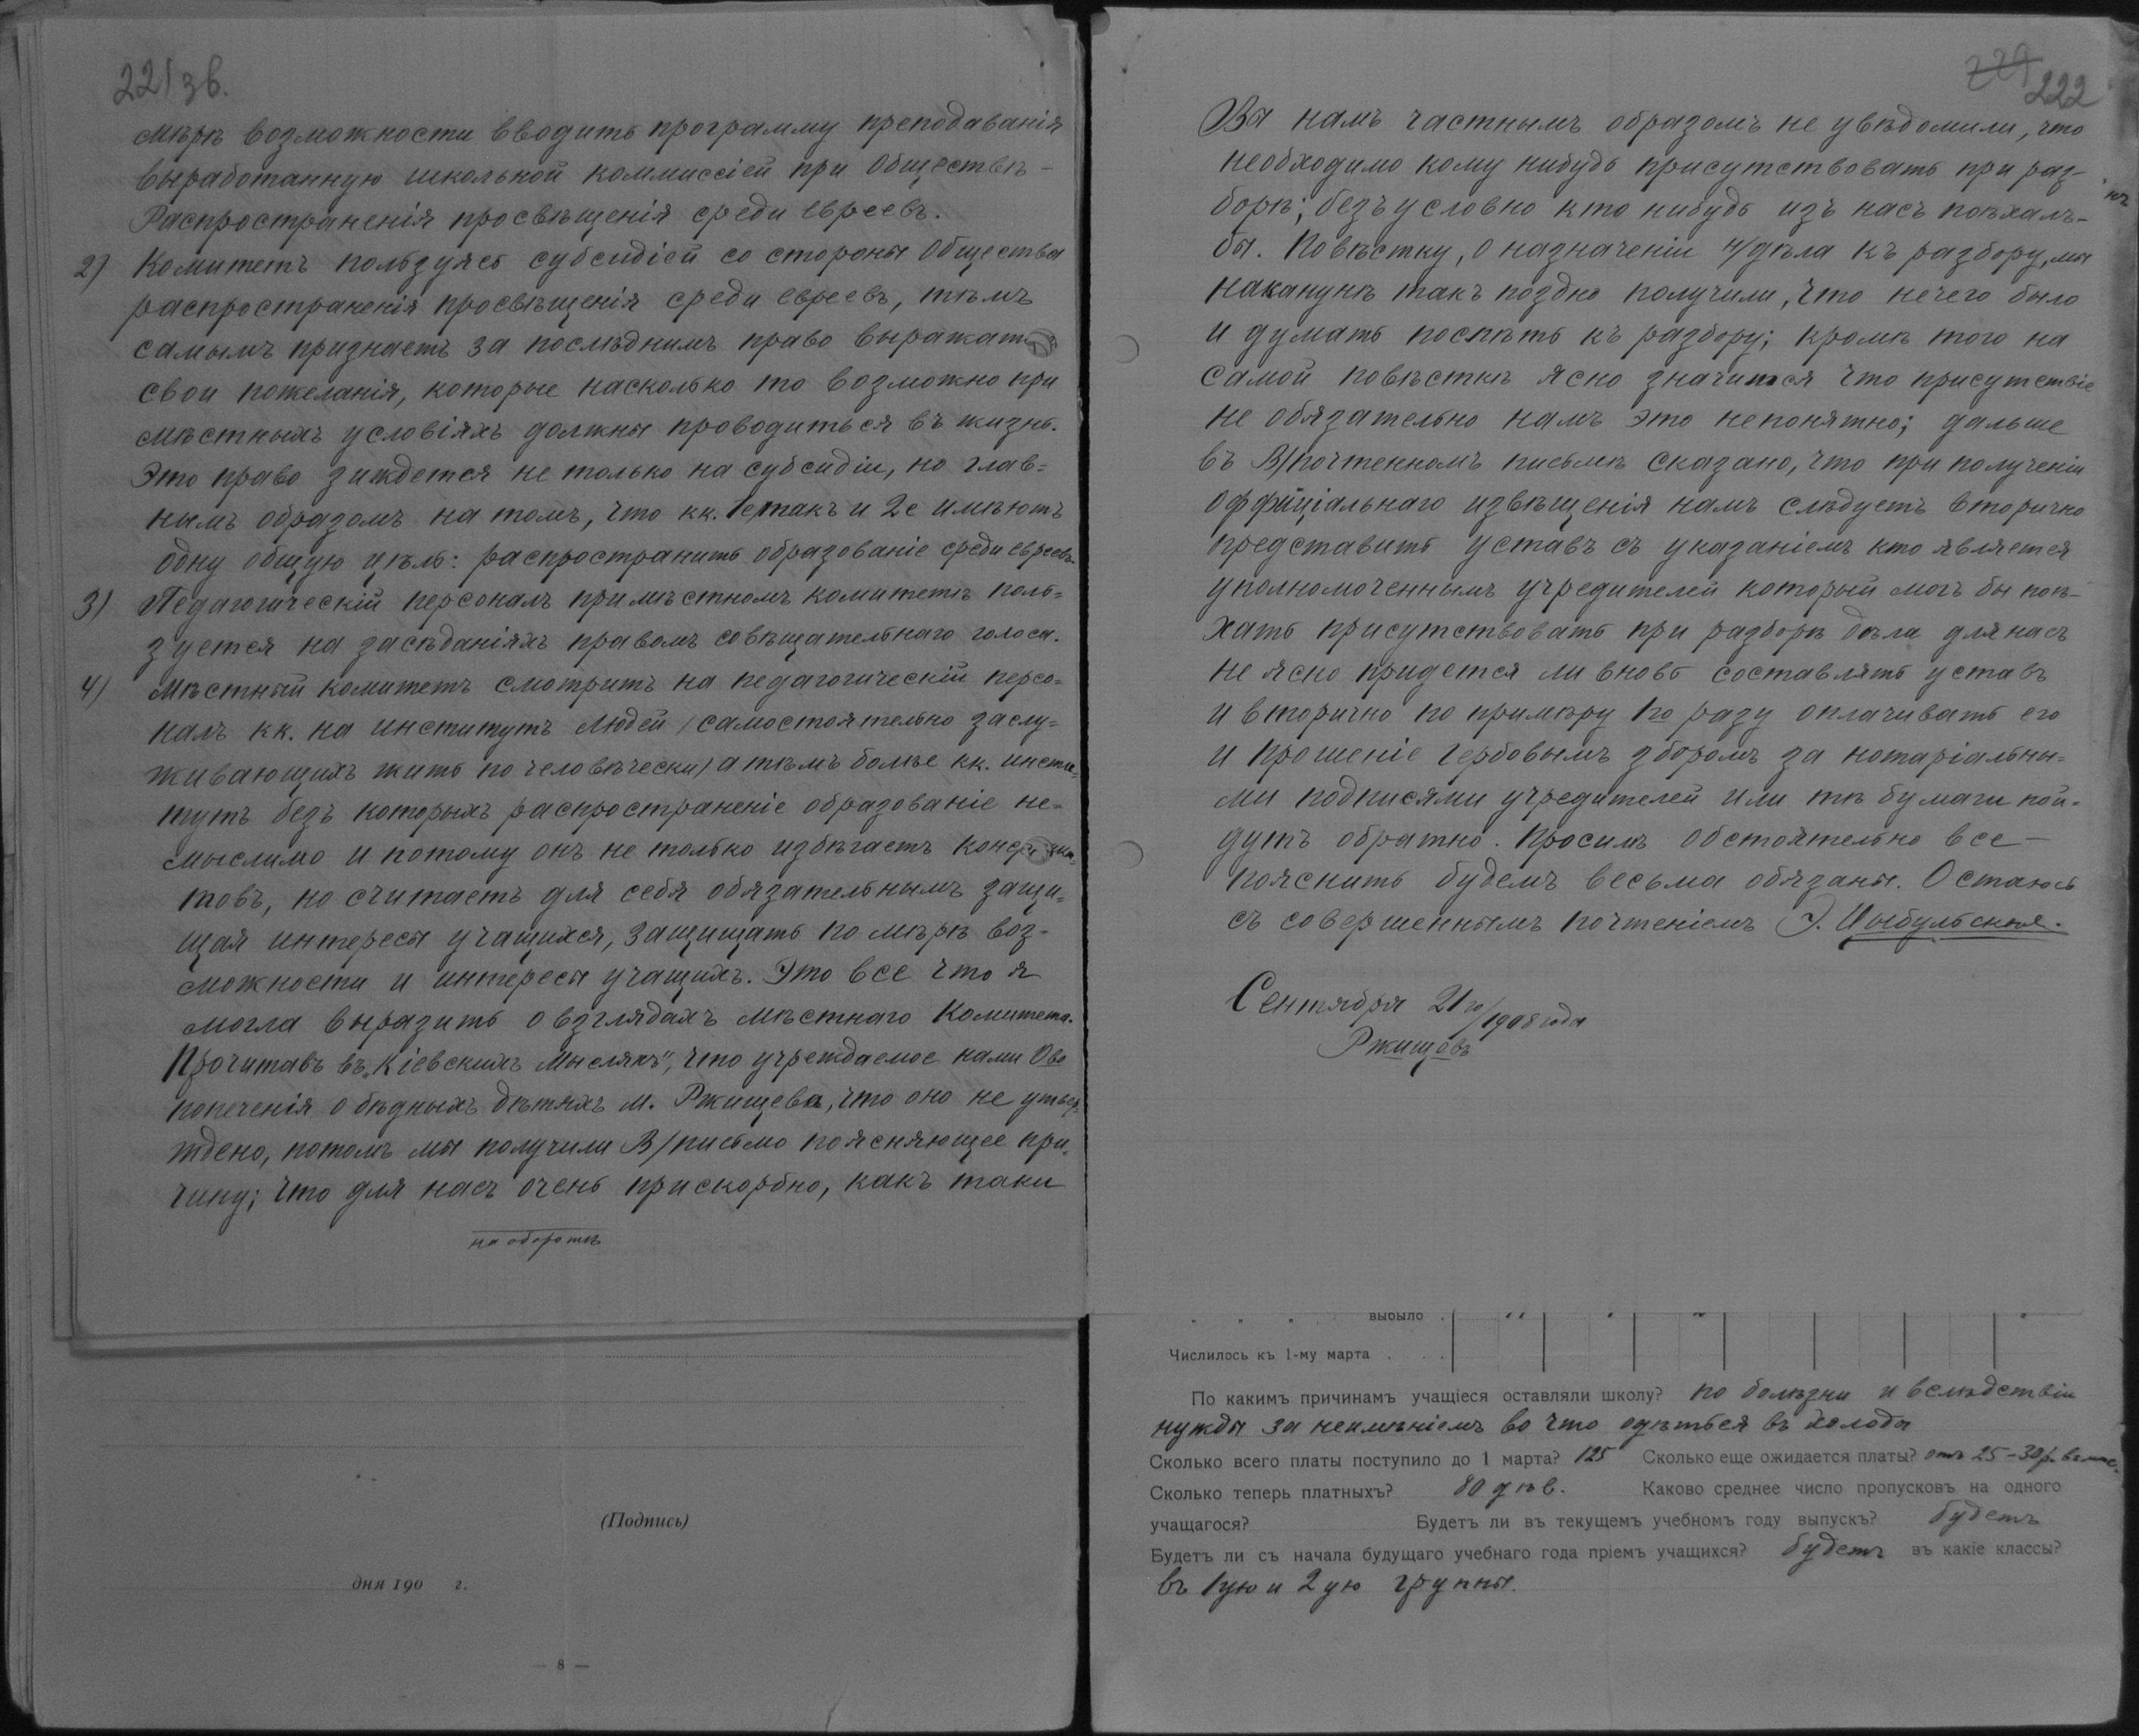 221 зв.
мѣрѣ возможности вводить программу преподаванія
выработанную школьной коммиссіей при Обществѣ –
Распространенія просвѣщенія среди евреевъ.
2) Комитетъ пользуясь субсидіей со стороны Общества
распространенія просвѣщенія среди евреевъ, тѣмъ
самымъ признаетъ за послѣднимъ право выражать
свои пожеланія, которые насколько то возможно при
мѣстныхъ условіяхъ должны проводиться въ жизнь.
Это право зиждется не только на субсидіи, но глав=
нымъ образомъ на томъ, что кк. 1е, такъ и 2е имѣютъ
одну общую цѣль: распространить образованіе среди евреевъ.
3) Педагогическій персоналъ при мѣстномъ комитетѣ поль=
зуется на засѣданіяхъ правомъ совѣщательнаго голоса.
4) Мѣстный комитетъ смотритъ на педагогическій персо=
налъ кк. на институтъ людей /самостоятельно заслу=
живающихъ жить по человѣчески/ а тѣмъ болѣе кк. инсти=
тутъ безъ которыхъ распространеніе образованіе не=
мыслимо и потому онъ не только избѣгаетъ
товъ, но считаетъ для себя обязательнымъ защи=
щая интересы учащихся, защищать по мѣрѣ воз-
можности и интересы учащихъ. Это все что я
могла выразить о взглядахъ мѣстнаго Комитета.
Прочитавъ въ „Кіевскихъ Мысляхъ", что учреждаемое нами О-во
попеченія о бѣдныхъ дѣтяхъ м. Ржищева, что оно не утвер=
ждено, потомъ мы получили В/письмо поясняющее при=
чину; что для насъ очень прискорбно, какъ таки
на оборотѣ
(Подпись)
дня 190 г.
— 8 —
221 222
Вы намъ частнымъ образомъ не увѣдомили, что
необходимо кому нибудь присутствовать при раз-
борѣ; безъусловно кто нибудь изъ насъ поѣхалъ-
бы. Повѣстку, о назначеніи н/дѣла къ разбору, мы
наканунѣ такъ поздно получили, что нечего было
и думать поспѣть къ разбору; кромѣ того на
самой повѣсткѣ ясно значится что присутствіе
не обязательно намъ это непонятно; дальше
въ В/почтенномъ письмѣ сказано, что при полученіи
оффиціальнаго извѣщенія намъ слѣдуетъ вторично
представить уставъ съ указаніемъ кто является
уполномоченнымъ учредителей который могъ бы поѣ-
хать присутствовать при разборѣ дѣла для насъ
не ясно придется ли вновь составлять уставъ
и вторично по примѣру 1го разу оплачивать его
и прошеніе гербовымъ зборомъ за нотаріальны=
ми подписями учредителей или тѣ бумаги пой-
дутъ обратно. Просимъ обстоятельно все –
пояснить будемъ весьма обязаны. Остаюсь
съ совершеннымъ почтеніемъ Э. Цыбульская.
Сентября 21го/1908 года
Ржищевъ
выбыло .
Числилось къ 1-му марта . . .
По какимъ причинамъ учащіеся оставляли школу? по болѣзни и вслѣдствіи
нужды за неимѣніемъ во что одѣться въ холода
Сколько всего платы поступило до 1 марта? 125 Сколько еще ожидается платы? отъ 25–30 р. въ мѣс.
Сколько теперь платныхъ? 80 дѣв. Каково среднее число пропусковъ на одного
учащагося? Будетъ ли въ текущемъ учебномъ году выпускъ? будетъ
Будетъ ли съ начала будущаго учебнаго года пріемъ учащихся? будетъ въ какіе классы?
въ 1ую и 2ую группы.